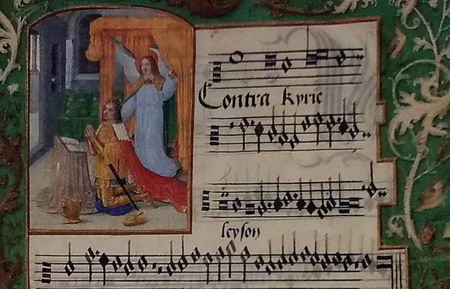 Contra Kyrie
leyson